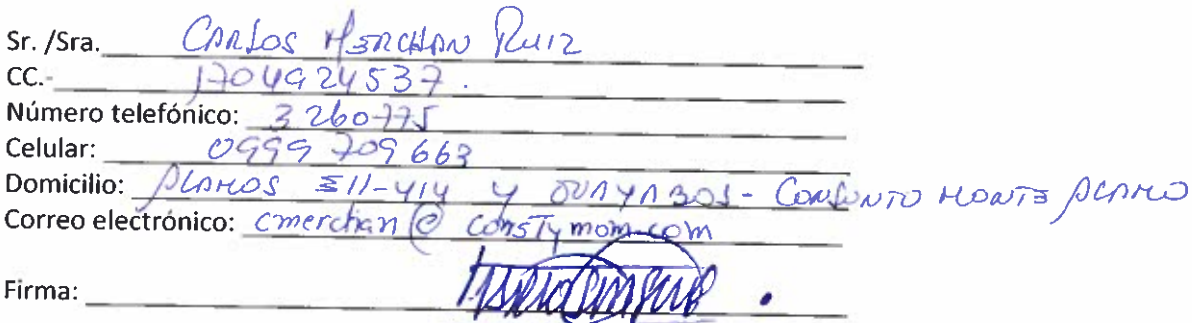 Sr. /Sra. CARLOS MERCHAN RUIZ
CC.- 1704924537.
Número telefónico: 3260775
Celular: 0999 709 663
Domicilio: PLANOS E11-414 y GUAYABOS - CONJUNTO MONTE PLANO
Correo electrónico: cmerchan@constymom.com
Firma: